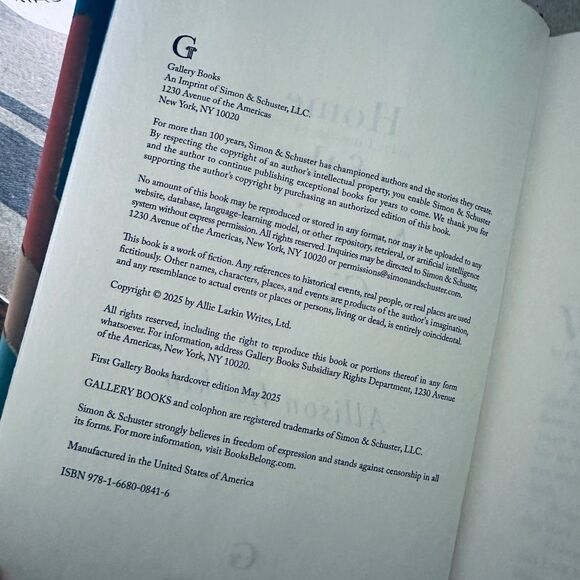 G
Gallery Books
An Imprint of Simon & Schuster, LLC.
1230 Avenue of the Americas
New York, NY 10020
For more than 100 years, Simon & Schuster has championed authors and the stories they create.
By respecting the copyright of an author's intellectual property, you enable Simon & Schuster
and the author to continue publishing exceptional books for years to come. We thank you for
supporting the author's copyright by purchasing an authorized edition of this book.
No amount of this book may be reproduced or stored in any format, nor may it be uploaded to any
website, database, language-learning model, or other repository, retrieval, or artificial intelligence
system without express permission. All rights reserved. Inquiries may be directed to Simon & Schuster,
1230 Avenue of the Americas, New York, NY 10020 or permissions@simonandschuster.com.
This book is a work of fiction. Any references to historical events, real people, or real places are used
fictitiously. Other names, characters, places, and events are products of the author's imagination,
and any resemblance to actual events or places or persons, living or dead, is entirely coincidental.
Copyright © 2025 by Allie Larkin Writes, Ltd.
All rights reserved, including the right to reproduce this book or portions thereof in any form
whatsoever. For information, address Gallery Books Subsidiary Rights Department, 1230 Avenue
of the Americas, New York, NY 10020.
First Gallery Books hardcover edition May 2025
GALLERY BOOKS and colophon are registered trademarks of Simon & Schuster, LLC.
Simon & Schuster strongly believes in freedom of expression and stands against censorship in all
its forms. For more information, visit BooksBelong.com.
Manufactured in the United States of America
ISBN 978-1-6680-0841-6